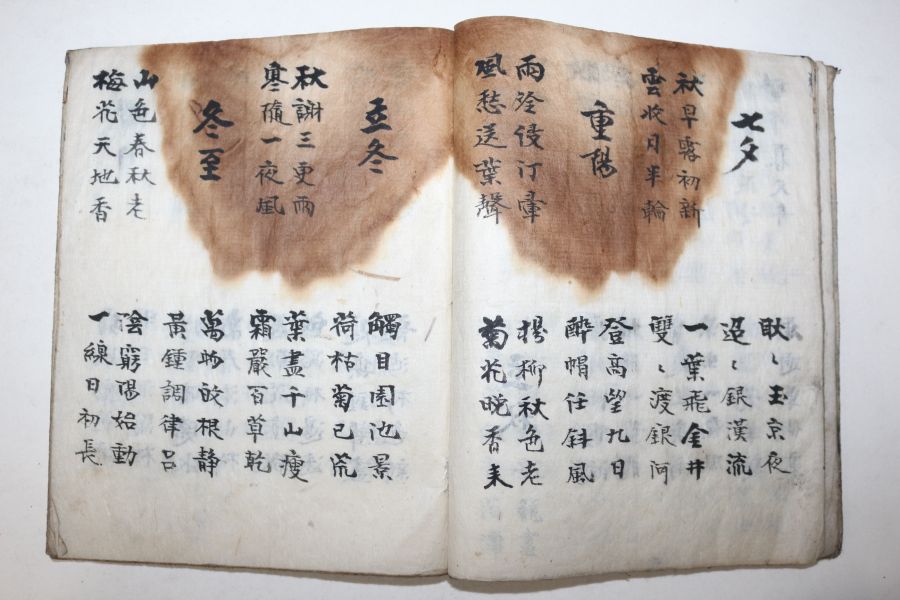 七夕
秋早露初新
雲收月半輪
重陽
雨冷侵汀
風愁送葉聲
耿〻玉京夜
迢〻銀漢流
一葉飛金井
雙〻渡銀河
登高望九日
醉帽任斜風
楊柳秋色老
菊花晚香来
立冬
秋謝三更雨
寒隨一夜風
冬至
山色春秋老
梅花天地香
觸目園池景
荷枯菊已荒
葉盡千山瘦
霜嚴百草乾
萬物皈根静
黃鍾調律呂
陰窮陽始動
一線日初長